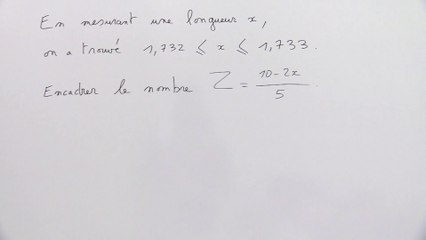 En mesurant une longueur x,
on a trouvé 1,732 ⩽ x ⩽ 1,733.
Encadrer le nombre Z = (10 - 2x)/5.